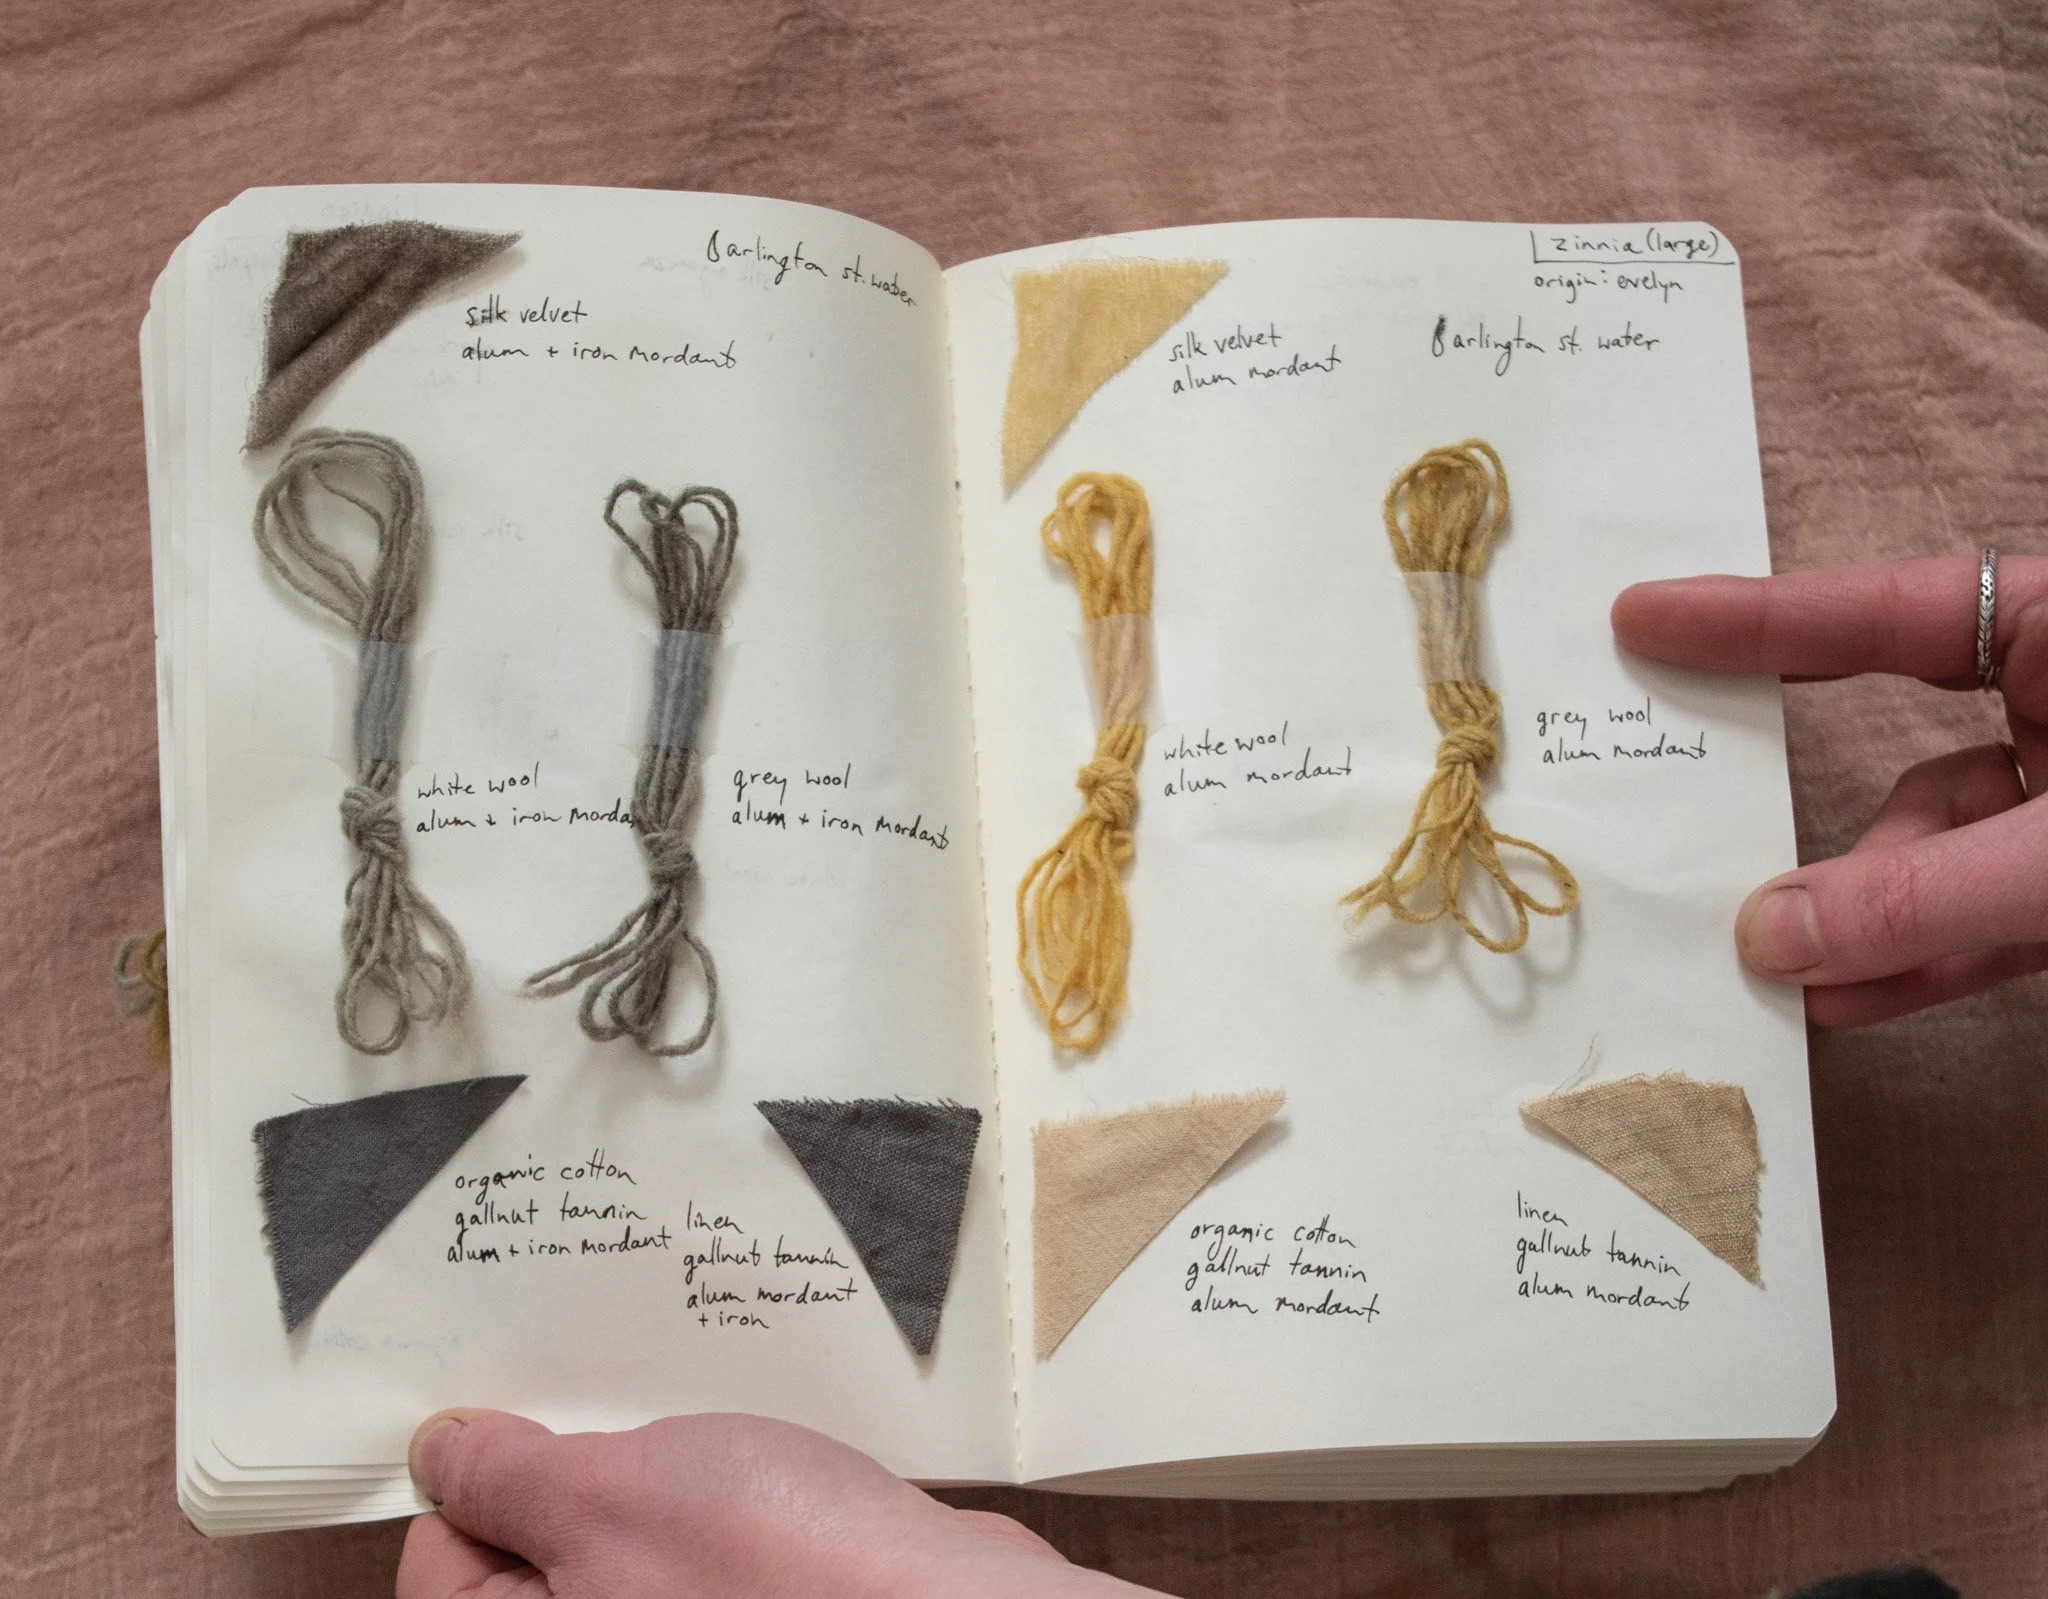 arlington st. water
silk velvet
alum + iron mordant
white wool
alum + iron morda
grey wool
alum + iron mordant
organic cotton
gallnut tannin
alum + iron mordant
linen
gallnut tannin
alum mordant
+ iron
zinnia (large)
origin: evelyn
arlington st. water
silk velvet
alum mordant
white wool
alum mordant
grey wool
alum mordant
organic cotton
gallnut tannin
alum mordant
linen
gallnut tannin
alum mordant